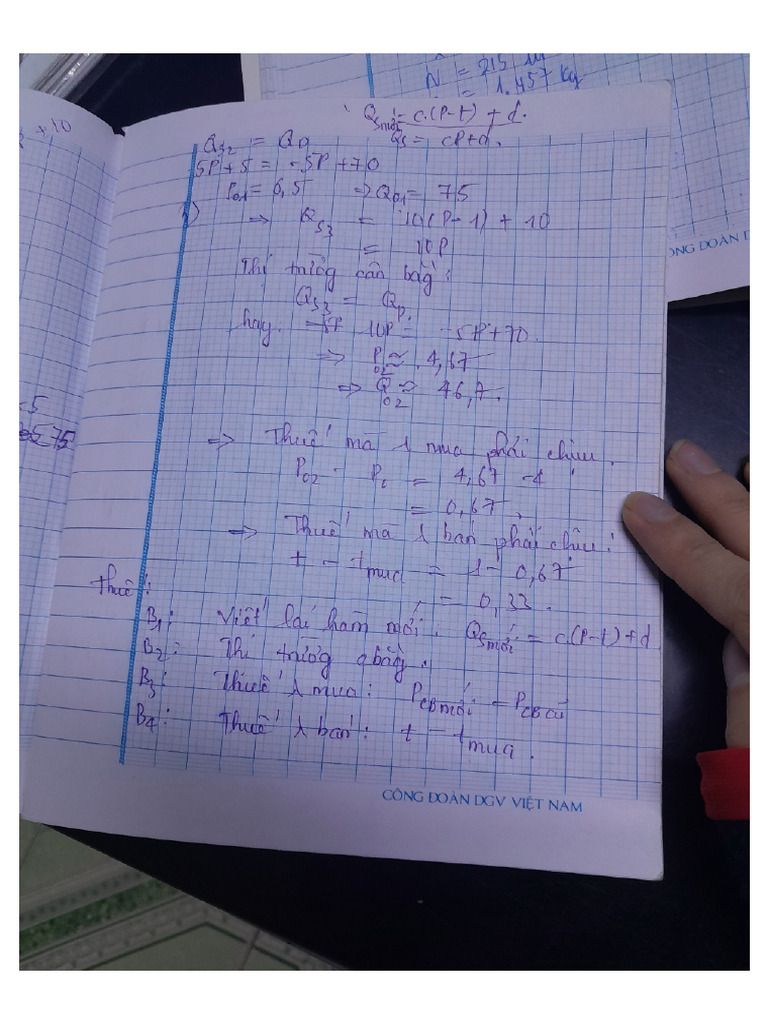 N = 215
= 1.457 kg
Qsmới = c.(P-t) + d.
Qs = cP+d.
+10
Qs2 = QD
5P+5 = -5P+70
P01 = 6,5 => Q01 = 75
=> QS3 = 10(P-1) + 10
= 10P
Thị trường cân bằg:
QS3 = QD.
hay. 10P = -5P+70.
=> P02 ≈ 4,67
=> Q02 ≈ 46,7.
=> Thuế mà λ mua phải chịu.
P02 - P0 = 4,67 -4
= 0,67.
=> Thuế mà λ bán phải chịu:
t - tmua = 1 - 0,67
= 0,33.
Thuế:
B1: Viết lại hàm mới. Qsmới = c(P-t)+d
B2: Thị trường cbằg.
B3: Thuế λ mua: PCBmới - PCBcũ
B4: Thuế λ bán: t - tmua.
CÔNG ĐOÀN DGV VIỆT NAM